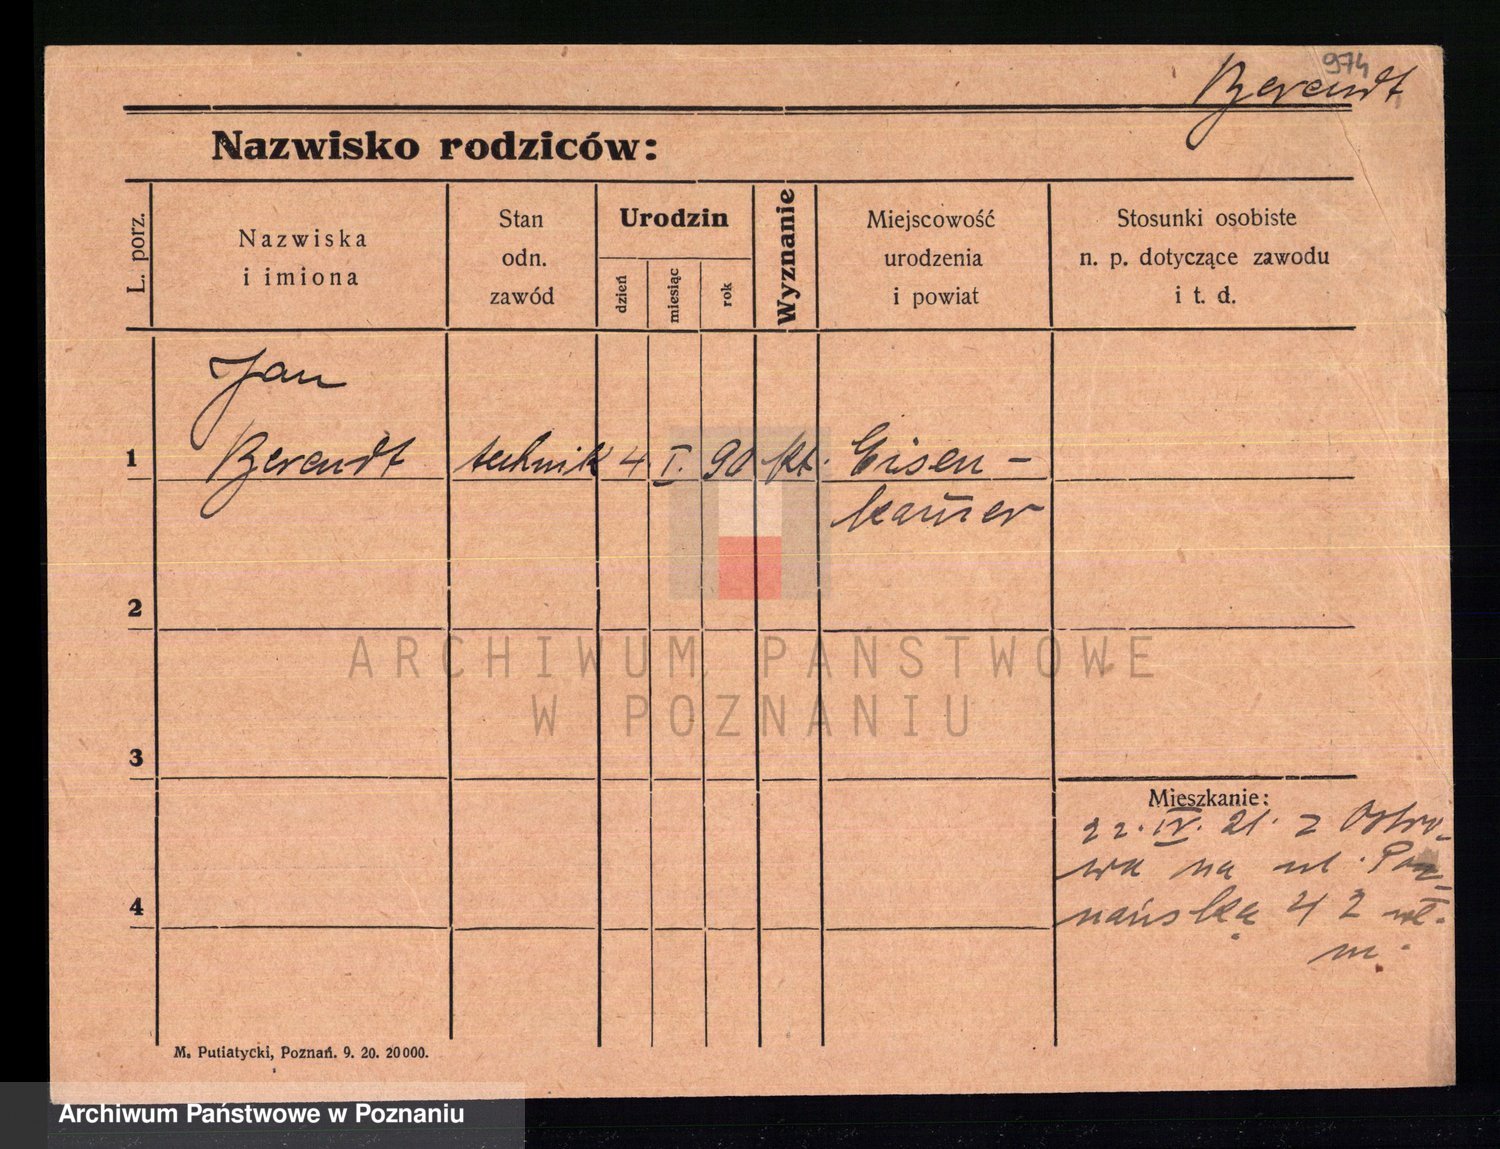 974
Berendt
Nazwisko rodziców:
L. porz.
Nazwiska
i imiona
Stan
odn.
zawód
Urodzin
dzień
miesiąc
rok
Wyznanie
Miejscowość
urodzenia
i powiat
Stosunki osobiste
n. p. dotyczące zawodu
i t. d.
Jan
1 Berendt technik 4 I. 90 kt. Eisen-
hamer
2
ARCHIWUM PAŃSTWOWE
W POZNANIU
3
Mieszkanie:
22. IV. 21. z Ostro-
wa na ul. Poz-
nańską 42
m.
4
M. Putiatycki, Poznań. 9. 20. 20000.
Archiwum Państwowe w Poznaniu